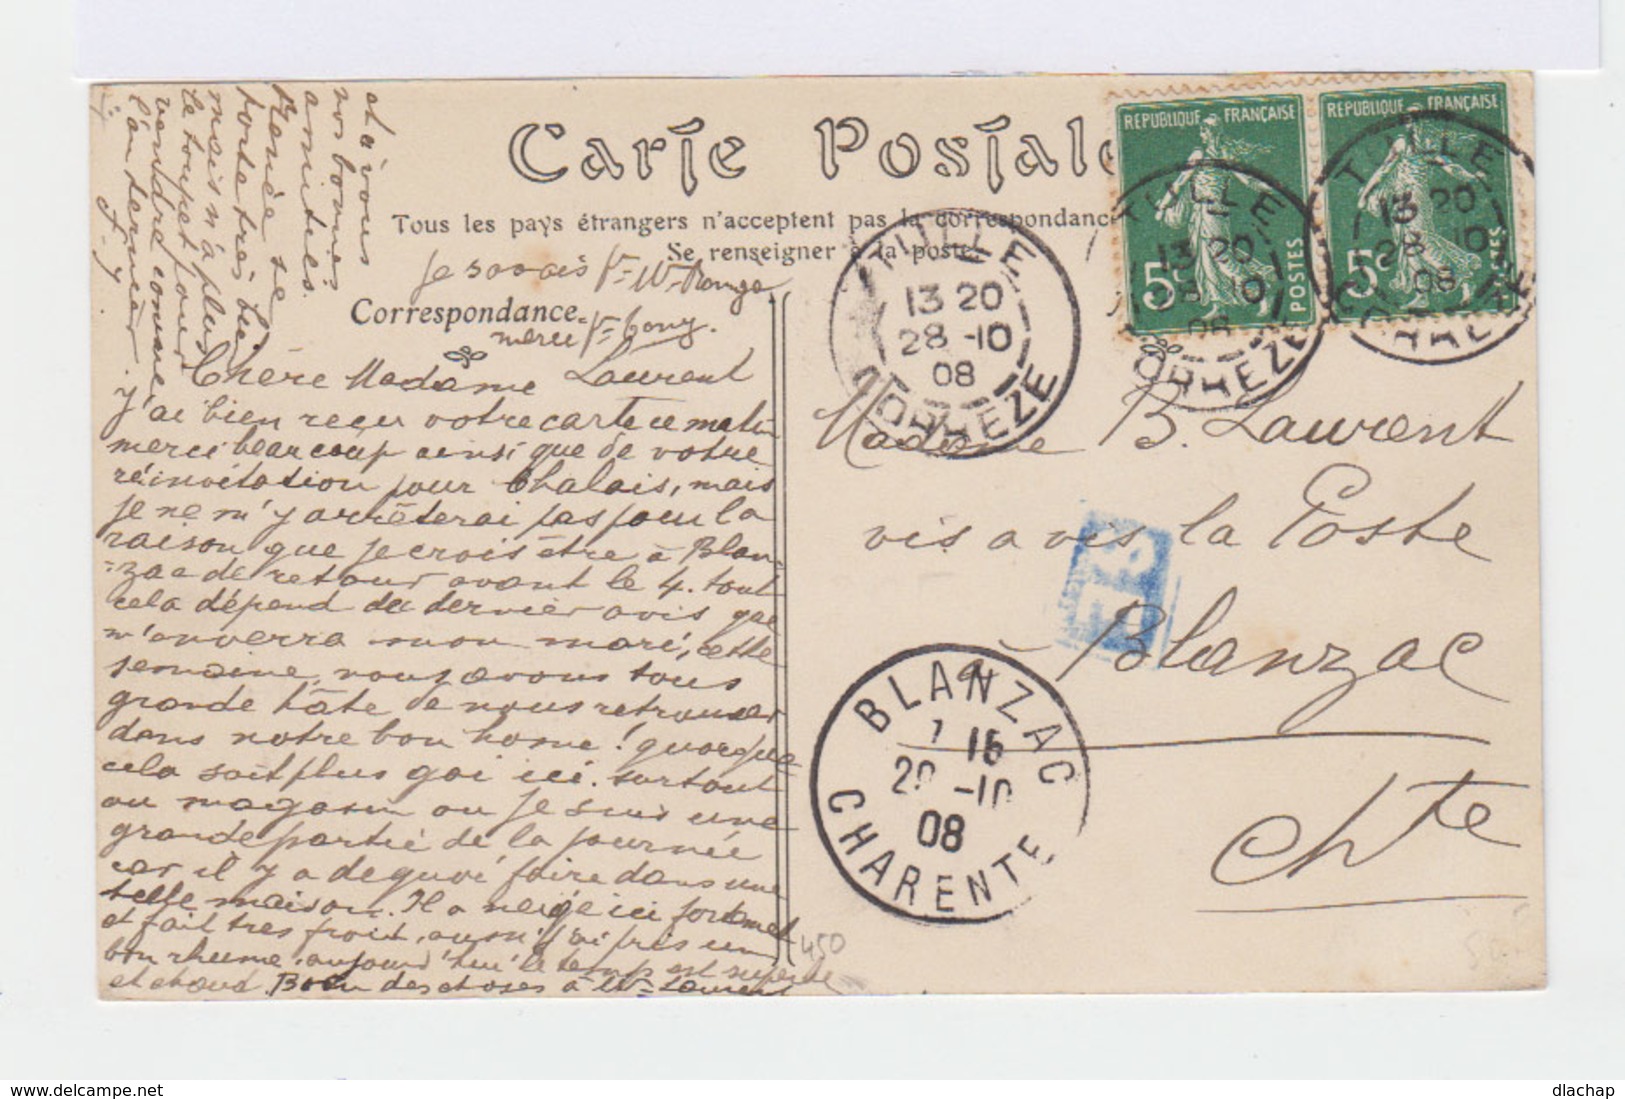 Carte Postale
Tous les pays étrangers n'acceptent pas la correspondance
Se renseigner à la poste.
Correspondance
je savais pr Mr Rouge
merci pr
Chère Madame Laurent
j'ai bien reçu votre carte ce matin
merci beaucoup ainsi que de votre
réinvitation pour Chalais, mais
je ne m'y arrêterai pas pour la
raison que je crois être à Blan-
-zac de retour avant le 4. tout
cela dépend du dernier avis que
m'enverra mon mari, cette
semaine, nous avons tous
grande hâte de nous retrouver
dans notre bon home! quoique
cela soit plus gai ici. surtout
au magasin ou je suis une
grande partie de la journée
car il y a de quoi faire dans une
telle maison. Il a neigé ici fortement
et fait très froid, aussi j'ai pris un
bon rhume, aujourd'hui le temps est superbe
et chaud. Bien des choses à Mr Laurent
et à vous
nos bonnes
amitiés.
Renée se
porte très bien
mais n'a plus
le toupet pour
vendre comme
l'an dernier.
REPUBLIQUE FRANÇAISE
5c
POSTES
REPUBLIQUE FRANÇAISE
5c
POSTES
TULLE
13 20
28-10
08
CORREZE
TULLE
13 20
28-10
08
CORREZE
TULLE
13 20
28-10
08
CORREZE
Madame B. Laurent
vis a vis la Poste
à Blanzac
Chte
BLANZAC
7 15
29-10
08
CHARENTE
450
delcampe.net
dlachap